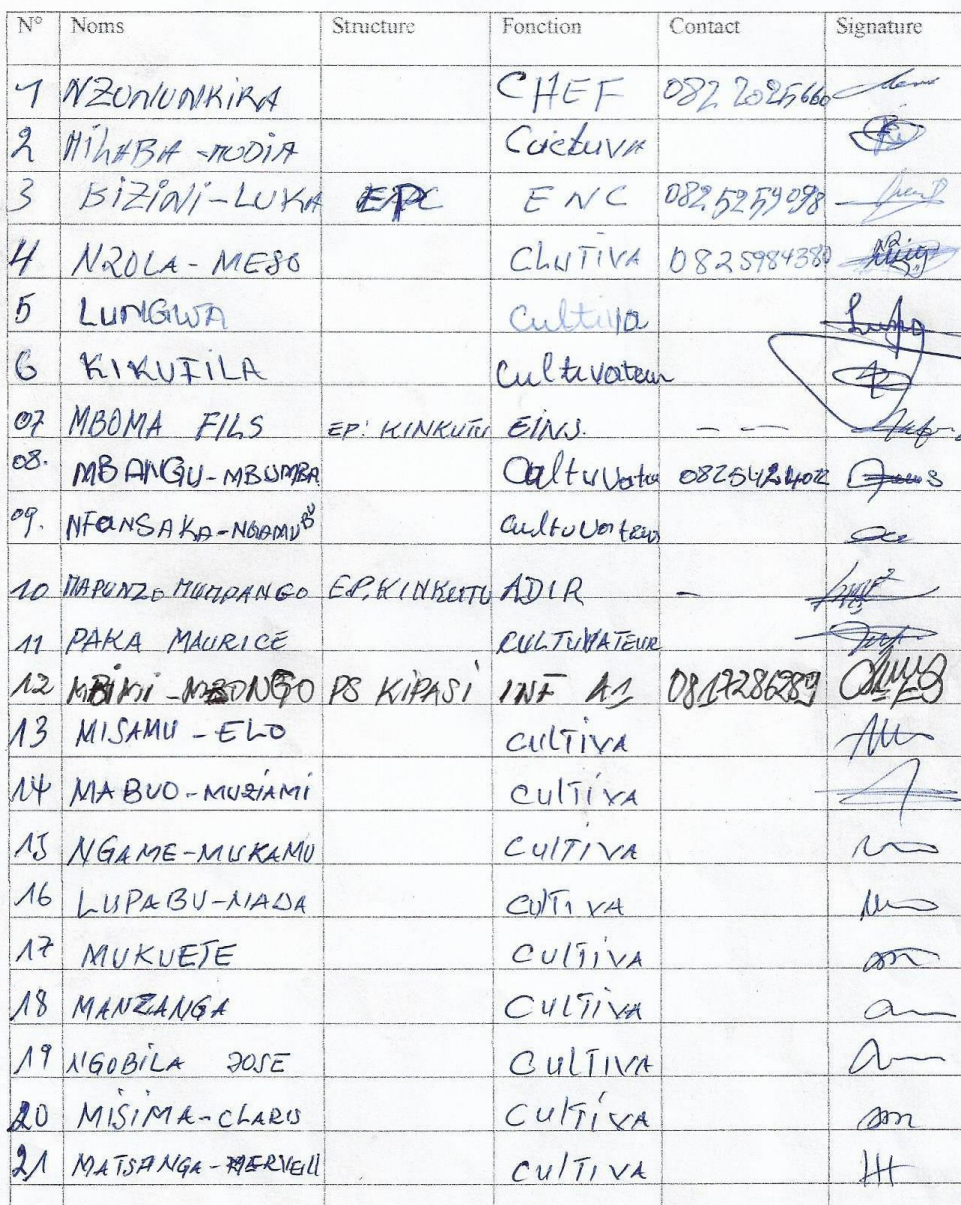 N° Noms Structure Fonction Contact Signature
1 NZUNUNKIRA CHEF 082 2025660
2 MILABA - MUDIA
3 BIZINI-LUKA EPC ENC 0825259098
4 NZOLA - MESO CLUTIVA 0825984380
5 LUNGWA Cultiva
6 KIKUFILA Cultivateur
07 MBOMA FILS EP: KINKUTU EINS. - -
08. MBANGU-MBUMBA 0825424022
09. NFANSAKA-NGAMUBU
10 MAPUNZO MUMPANGO EP. KINKUTU ADIR -
11 PAKA MAURICE CULTIVATEUR
12 MBIMI - MBONGO PS KIPASI INF A1 0817286289
13 MISAMU - ELO CULTIVA
14 MABUO - MUZIAMI CULTIVA
15 NGAME-MUKAMU CULTIVA
16 LUPABU-NIADA CULTIVA
17 MUKUETE CULTIVA
18 MANZANGA CULTIVA
19 NGOBILA JOSE CULTIVA
20 MISIMA-CLARIS CULTIVA
21 MATSANGA-MERVEILL CULTIVA